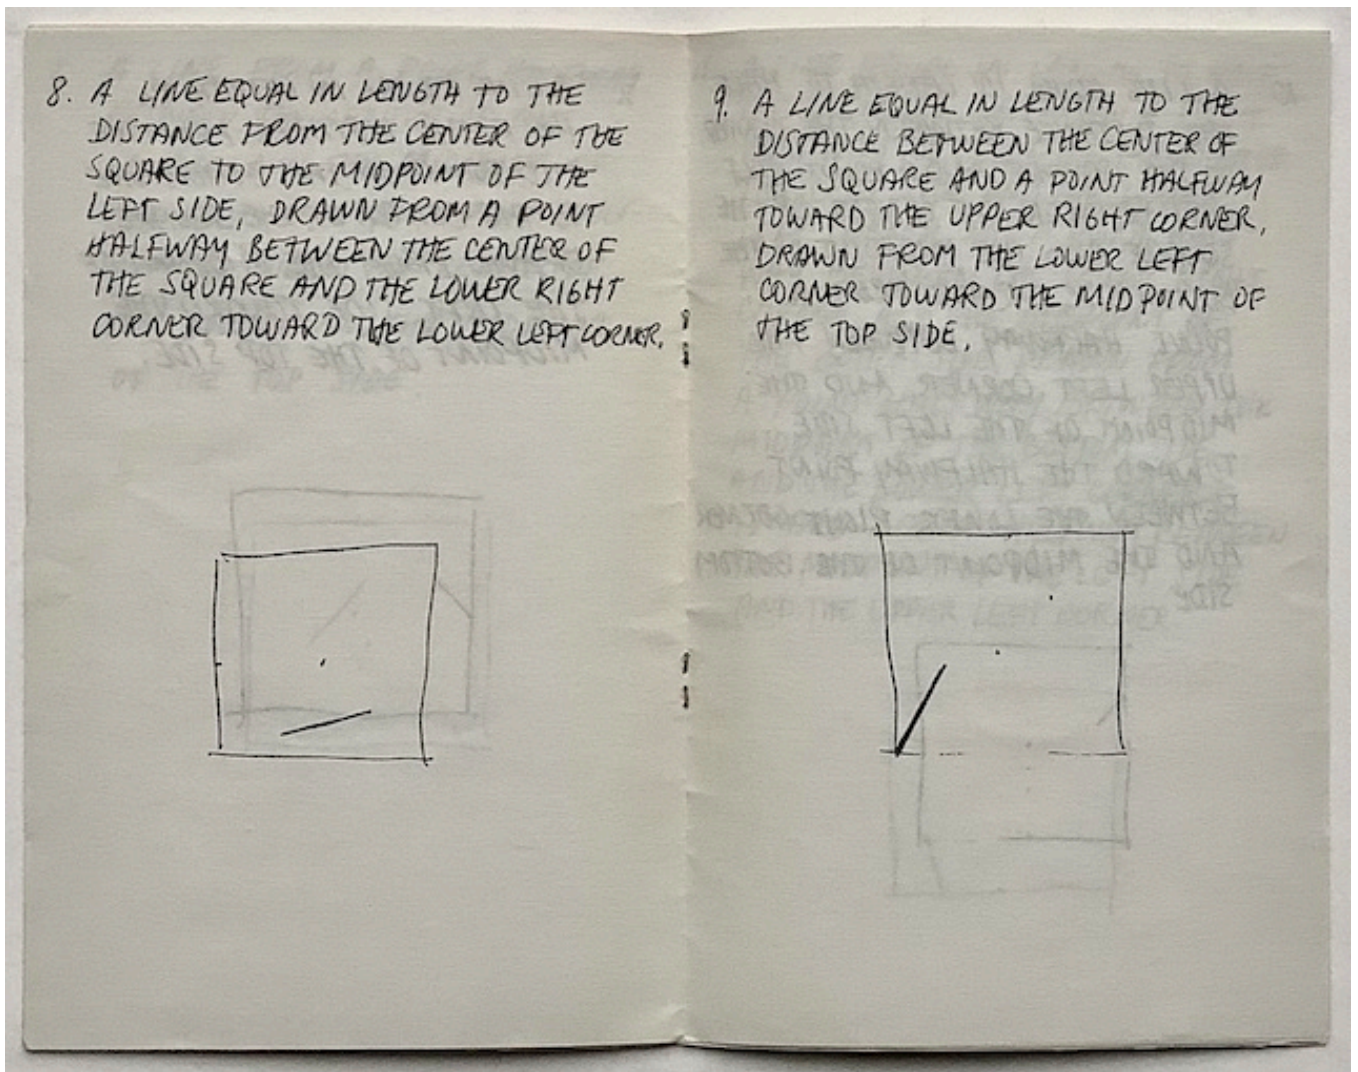 8. A LINE EQUAL IN LENGTH TO THE
DISTANCE FROM THE CENTER OF THE
SQUARE TO THE MIDPOINT OF THE
LEFT SIDE, DRAWN FROM A POINT
HALFWAY BETWEEN THE CENTER OF
THE SQUARE AND THE LOWER RIGHT
CORNER TOWARD THE LOWER LEFT CORNER.
9. A LINE EQUAL IN LENGTH TO THE
DISTANCE BETWEEN THE CENTER OF
THE SQUARE AND A POINT HALFWAY
TOWARD THE UPPER RIGHT CORNER,
DRAWN FROM THE LOWER LEFT
CORNER TOWARD THE MIDPOINT OF
THE TOP SIDE.